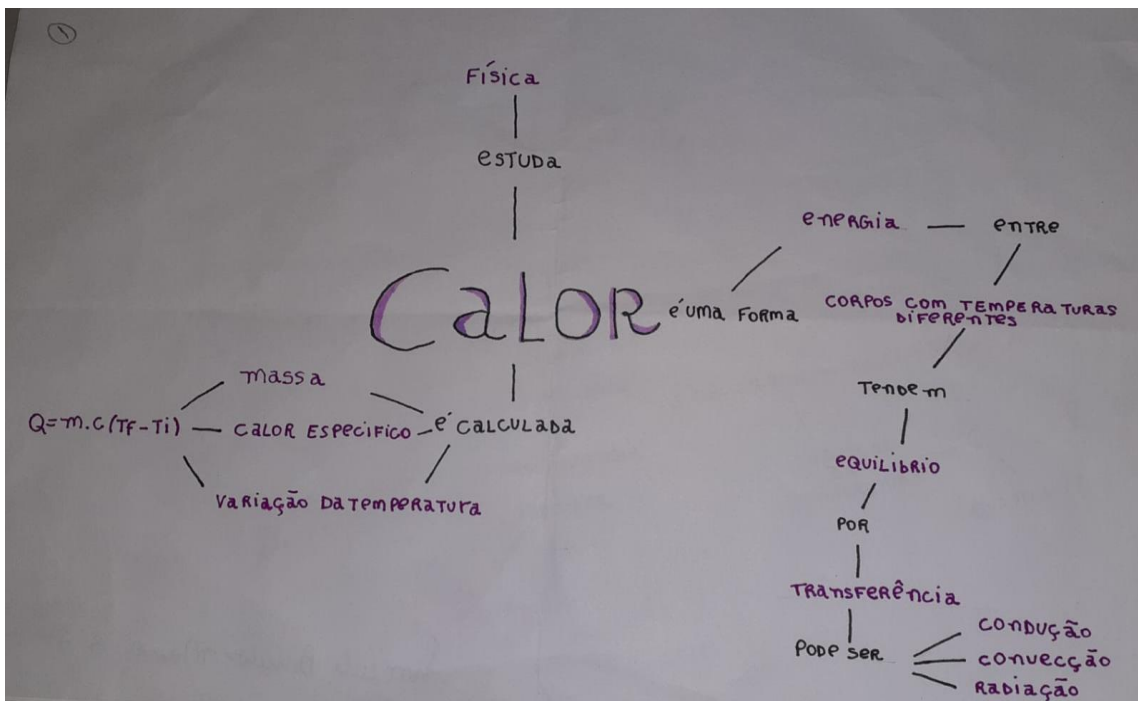 1
Física
estuda
Calor
é uma forma
energia
entre
corpos com temperaturas
diferentes
Tendem
equilibrio
por
Transferência
pode ser
condução
convecção
Radiação
é calculada
massa
calor especifico
variação da temperatura
Q=m.c(Tf-Ti)